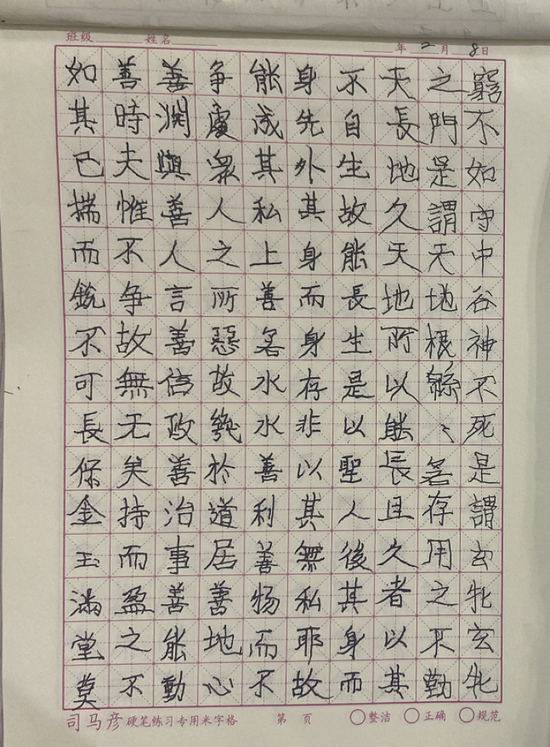 班级 姓名 年 2 月 8 日
窮不如守中谷神不死是謂玄牝玄牝
之門是謂天地根緜〻若存用之不勤
天長地久天地所以能長且久者以其
不自生故能長生是以聖人後其身而
身先外其身而身存非以其無私耶故
能成其私上善若水水善利善物而不
争處眾人之所惡故幾於道居善地心
善渊與善人言善信政善治事善能動
善時夫惟不争故無无矣持而盈之不
如其已揣而銳不可長保金玉滿堂莫
司马彦硬笔练习专用米字格 第 页 整洁 正确 规范